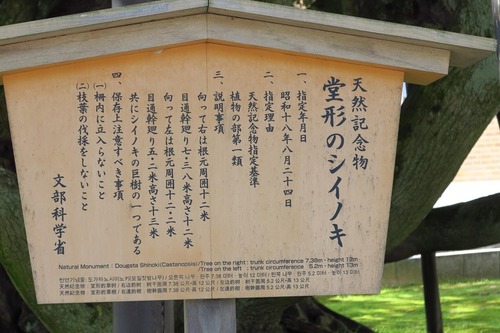 天然記念物
堂形のシイノキ
一、指定年月日
昭和十八年八月二十四日
二、指定理由
天然記念物指定基準
植物の部第一類
三、説明事項
向って右は根元周囲十二米
目通幹廻り七・三八米高さ十二米
向って左は根元周囲十二・二米
目通幹廻り五・二米高さ十三米
共にシイノキの巨樹の一つである
四、保存上注意すべき事項
(一)柵内に立入らないこと
(二)枝葉の伐採をしないこと
文部科学省
Natural Monument : Dougata Shiinoki(Castanopsis)/Tree on the right : trunk circumference 7.38m・height 12m
/Tree on the left : trunk circumference 5.2m・height 13m